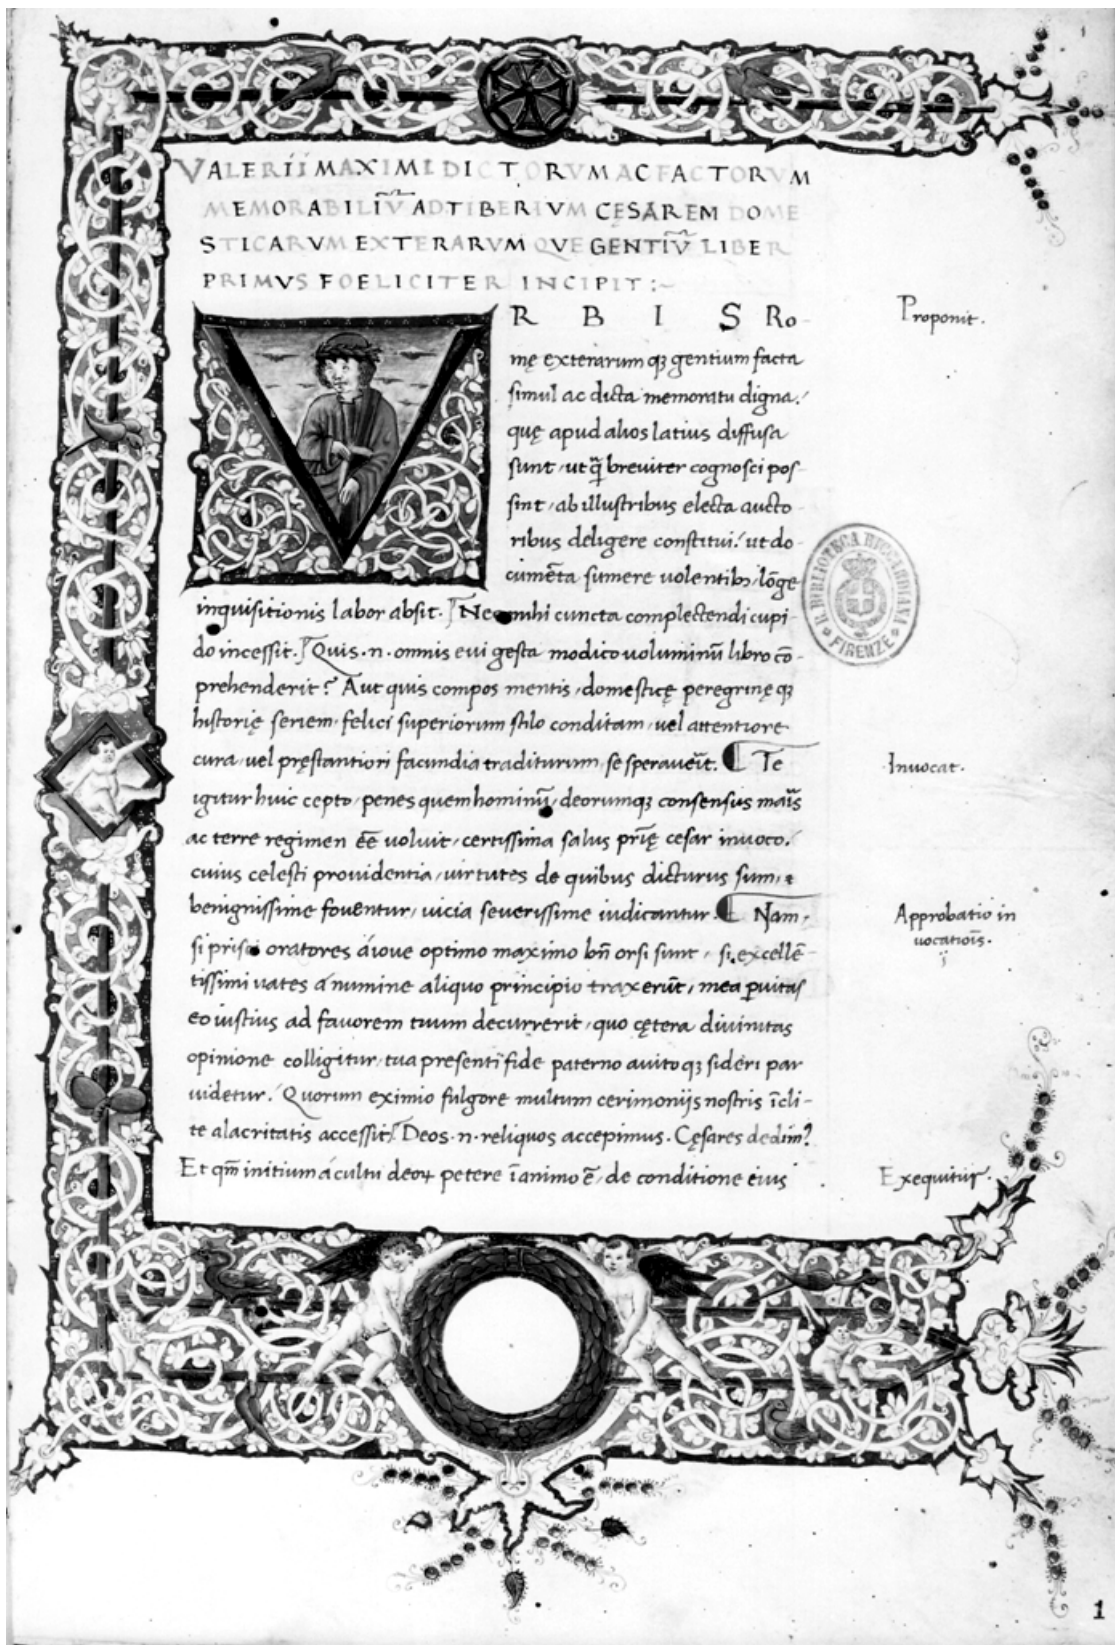 VALERII MAXIMI DICTORVM AC FACTORVM
MEMORABILIŪ AD TIBERIVM CĘSAREM DOME
STICARVM EXTERARVM QVE GENTIŪ LIBER
PRIMVS FOELICITER INCIPIT :~
V R B I S Ro-
Proponit.
mę exterarum qꝫ gentium facta
simul ac dicta memoratu digna:
quę apud alios latius diffusa
sunt, ut q̄ breviter cognosci pos-
sint, ab illustribus electa aucto-
ribus deligere constitui: ut do-
cumēta sumere volentibꝫ, lōge
inquisitionis labor absit. Nec mihi cuncta complectendi cupi-
do incessit. Quis .n. omnis evi gesta modico voluminū libro cō-
prehenderit? Aut quis compos mentis, domesticę peregrinę qꝫ
historię seriem, felici superiorum stilo conditam, vel attentiore
cura, vel pręstantiori facundia traditurum, se speraveīt. Te
Invocat.
igitur huic cepto, penes quem hominū, deorumqꝫ consensus maīs
ac terre regimen eē voluit, certissima salus prīę cesar invoco:
cuius celesti providentia, virtutes de quibus dicturus sum,
benignissime foventur, vicia severissime iudicantur. Nam,
Approbatio in
vocatiois.
si prisci oratores á iove optimo maximo bn̄ orsi sunt, si excellē-
tissimi vates á numine aliquo principio traxerūt, mea ꝑvitas
eo iustius ad favorem tuum decurrerit, quo cętera divinitas
opinione colligitur, tua presenti fide paterno avitoqꝫ sideri par
videtur: Quorum eximio fulgore multum cerimoniis nostris īcli-
te alacritatis accessit. Deos .n. reliquos accepimus. Cęsares dedim?
Et qm̄ initium á cultu deoꝝ petere ī animo ē, de conditione eius
Exequitur.
R. BIBLIOTECA RICCARDIANA
FIRENZE
1